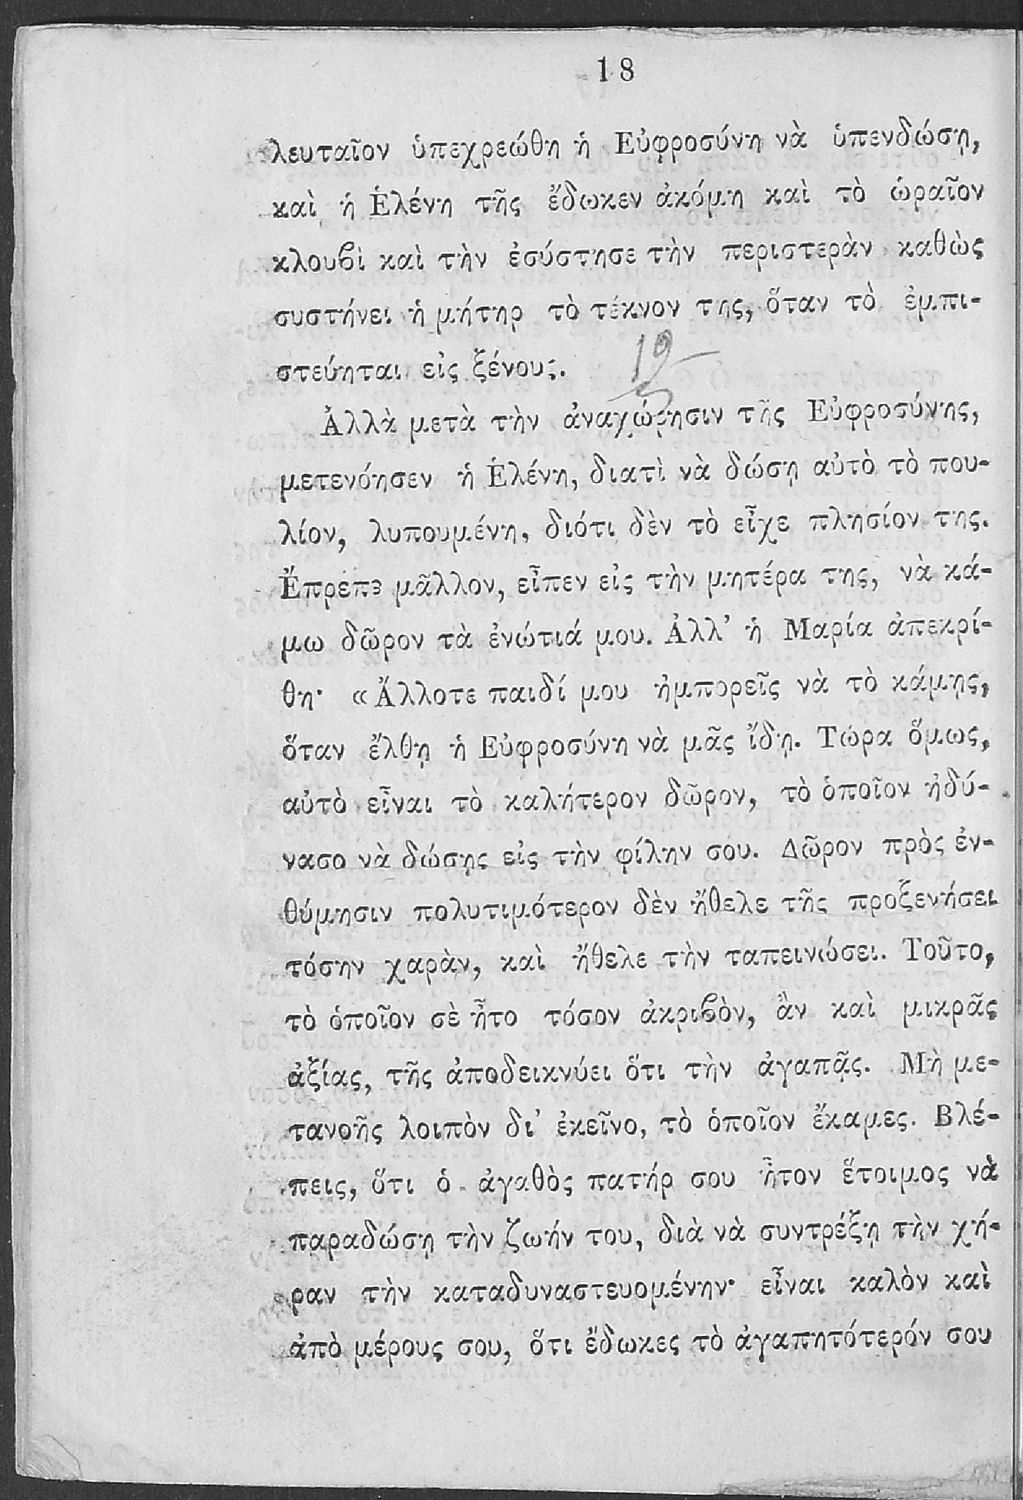 18
λευταῖον ὑπεχρεώθη ἡ Εὐφροσύνη νὰ ὑπενδώσῃ,
καὶ ἡ Ἑλένη τῆς ἔδωκεν ἀκόμη καὶ τὸ ὡραῖον
κλουβὶ καὶ τὴν ἐσύστησε τὴν περιστερὰν καθὼς
συστήνει ἡ μήτηρ τὸ τέκνον της, ὅταν τὸ ἐμπι-
στεύηται εἰς ξένους.
19
Ἀλλὰ μετὰ τὴν ἀναχώρησιν τῆς Εὐφροσύνης,
μετενόησεν ἡ Ἑλένη, διατὶ νὰ δώσῃ αὐτὸ τὸ που-
λίον, λυπουμένη, διότι δὲν τὸ εἶχε πλησίον της.
Ἔπρεπε μᾶλλον, εἶπεν εἰς τὴν μητέρα της, νὰ κά-
μω δῶρον τὰ ἐνώτιά μου. Ἀλλ’ ἡ Μαρία ἀπεκρί-
θη· «Ἄλλοτε παιδί μου ἠμπορεῖς νὰ τὸ κάμῃς,
ὅταν ἔλθῃ ἡ Εὐφροσύνη νὰ μᾶς ἴδῃ. Τώρα ὅμως,
αὐτὸ εἶναι τὸ καλήτερον δῶρον, τὸ ὁποῖον ἠδύ-
νασο νὰ δώσῃς εἰς τὴν φίλην σου. Δῶρον πρὸς ἐν-
θύμησιν πολυτιμότερον δὲν ἤθελε τῆς προξενήσει
τόσην χαρὰν, καὶ ἤθελε τὴν ταπεινώσει. Τοῦτο,
τὸ ὁποῖον σὲ ἦτο τόσον ἀκριβὸν, ἂν καὶ μικρᾶς
ἀξίας, τῆς ἀποδεικνύει ὅτι τὴν ἀγαπᾷς. Μὴ με-
τανοῇς λοιπὸν δι’ ἐκεῖνο, τὸ ὁποῖον ἔκαμες. Βλέ-
πεις, ὅτι ὁ ἀγαθὸς πατήρ σου ἦτον ἕτοιμος νὰ
παραδώσῃ τὴν ζωήν του, διὰ νὰ συντρέξῃ τὴν χή-
ραν τὴν καταδυναστευομένην· εἶναι καλὸν καὶ
ἀπὸ μέρους σου, ὅτι ἔδωκες τὸ ἀγαπητότερόν σου